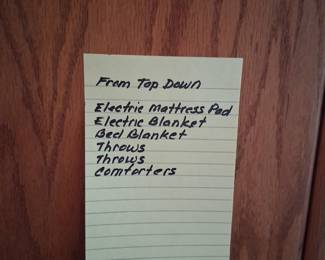 From Top Down
Electric Mattress Pad
Electric Blanket
Bed Blanket
Throws
Throws
Comforters